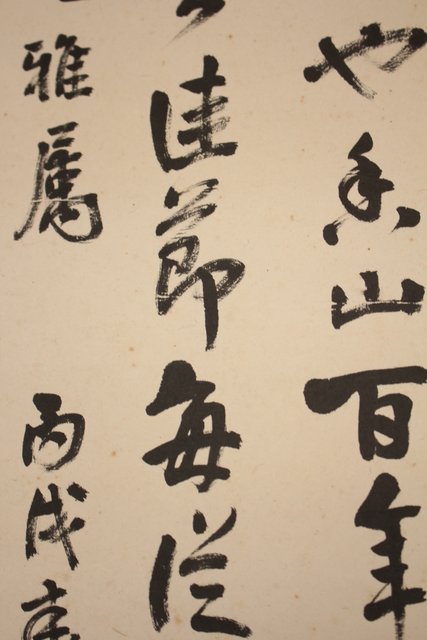 也山百年
佳節每從
雅属 丙戌